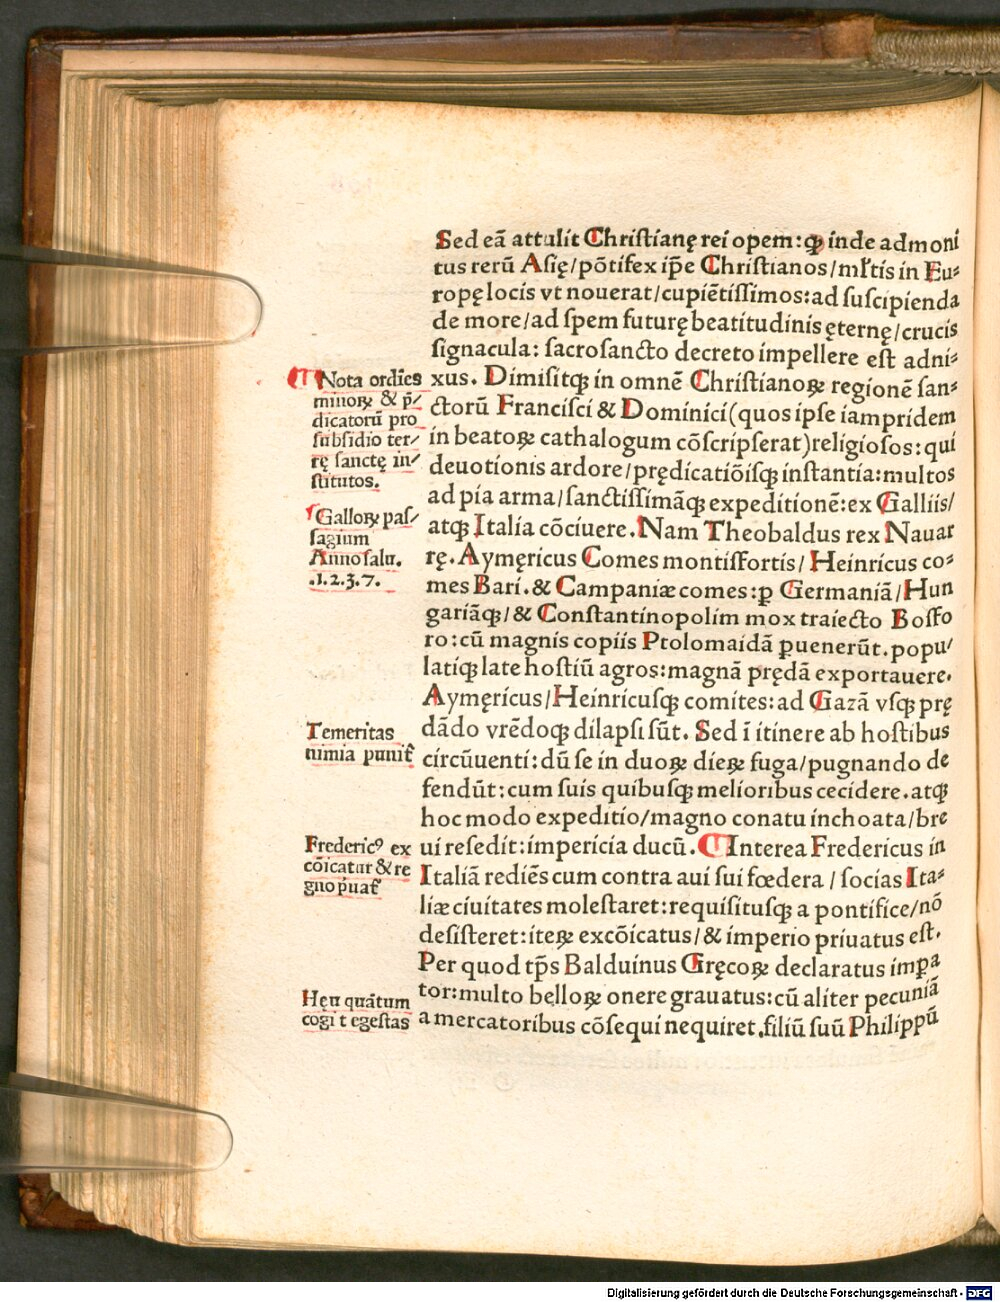 Sed eā attulit Christianę rei opem: ꝙ inde admoni
tus rerū Asię/ pōtifex ip̄e Christianos/ ml̄tis in Eu⸗
ropę locis vt nouerat/ cupiētissimos: ad suscipienda
de more/ ad spem futurę beatitudinis ęternę/ crucis
signacula: sacrosancto decreto impellere est adni⸗
xus. Dimisitqꝫ in omnē Christianoꝝ regionē san⸗
ctorū Francisci & Dominici (quos ipse iampridem
in beatoꝝ cathalogum cōscripserat) religiosos: qui
deuotionis ardore/ prędicatiōisqꝫ instantia: multos
ad pia arma/ sanctissimāqꝫ expeditionē: ex Galliis/
atqꝫ Italia cōciuere. Nam Theobaldus rex Nauar
rę. Aymęricus Comes montisfortis/ Heinricus co⸗
mes Bari. & Campaniæ comes: ꝑ Germaniā/ Hun
gariāqꝫ/ & Constantinopolim mox traiecto Bosfo
ro: cū magnis copiis Ptolomaidā ꝑuenerūt. popu/
latiqꝫ late hostiū agros: magnā prędā exportauere.
Aymęricus/ Heinricusqꝫ comites: ad Gazā vsqꝫ prę
dādo vrēdoqꝫ dilapsi sūt. Sed ī itinere ab hostibus
circūuenti: dū se in duoꝝ dieꝝ fuga/ pugnando de
fendūt: cum suis quibusqꝫ melioribus cecidere. atqꝫ
hoc modo expeditio/ magno conatu inchoata/ bre
ui resedit: impericia ducū. Interea Fredericus in
Italiā rediēs cum contra aui sui fœdera / socias Ita⸗
liæ ciuitates molestaret: requisitusqꝫ a pontifice/ nō
desisteret: iteꝝ excōicatus/ & imperio priuatus est.
Per quod tp̄s Balduinus Gręcoꝝ declaratus imꝑa
tor: multo belloꝝ onere grauatus: cū aliter pecuniā
a mercatoribus cōsequi nequiret. filiū suū Philippū
Nota ordīes
minoꝝ & p̄/
dicatorū pro
subsidio ter/
rę sanctę in/
stitutos.
Galloꝝ pas/
sagium
Anno salu.
.1.2.3.7.
Temeritas
nimia punit᷑
Frederic⁹ ex
cōicatur & re
gno p̓uat᷑
Hęu quātum
cogit egestas
Digitalisierung gefördert durch die Deutsche Forschungsgemeinschaft - DFG